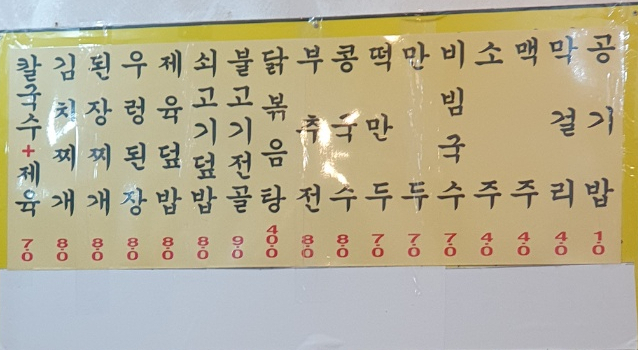 칼국수+제육 7.0
김치찌개 8.0
된장찌개 8.0
우렁된장 8.0
제육덮밥 8.0
쇠고기덮밥 8.0
불고기전골 9.0
닭볶음탕 40.0
부추전 8.0
콩국수 8.0
떡만두 7.0
만두 7.0
비빔국수 7.0
소주 4.0
맥주 4.0
막걸리 4.0
공기밥 1.0